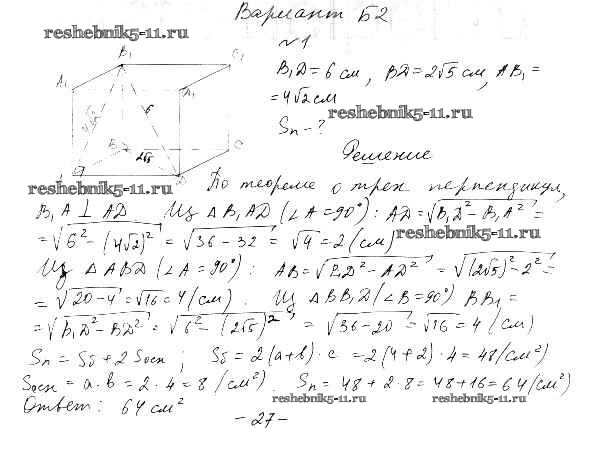 Вариант Б2
reshebnik5-11.ru
№1
B₁D = 6 см, BD = 2√5 см, AB₁ =
= 4√2 см
reshebnik5-11.ru
Sп - ?
Решение
B₁
C₁
A₁
D₁
4√2
6
B
C
2√5
reshebnik5-11.ru
По теореме о трех перпендикул,
B₁A ⊥ AD Из △B₁AD (∠A = 90°): AD = √B₁D² - B₁A² =
= √6² - (4√2)² = √36 - 32 = √4 = 2 (см)
reshebnik5-11.ru
Из △ABD (∠A = 90°): AB = √BD² - AD² = √(2√5)² - 2² =
= √20 - 4 = √16 = 4 (см). Из △BB₁D (∠B = 90°) BB₁ =
= √B₁D² - BD² = √6² - (2√5)² = √36 - 20 = √16 = 4 (см)
Sп = Sб + 2 Sосн; Sб = 2(a+b)·c = 2(4+2)·4 = 48 (см²)
Sосн = a·b = 2·4 = 8 (см²). Sп = 48 + 2·8 = 48 + 16 = 64 (см²)
Ответ: 64 см²
reshebnik5-11.ru
reshebnik5-11.ru
- 27 -